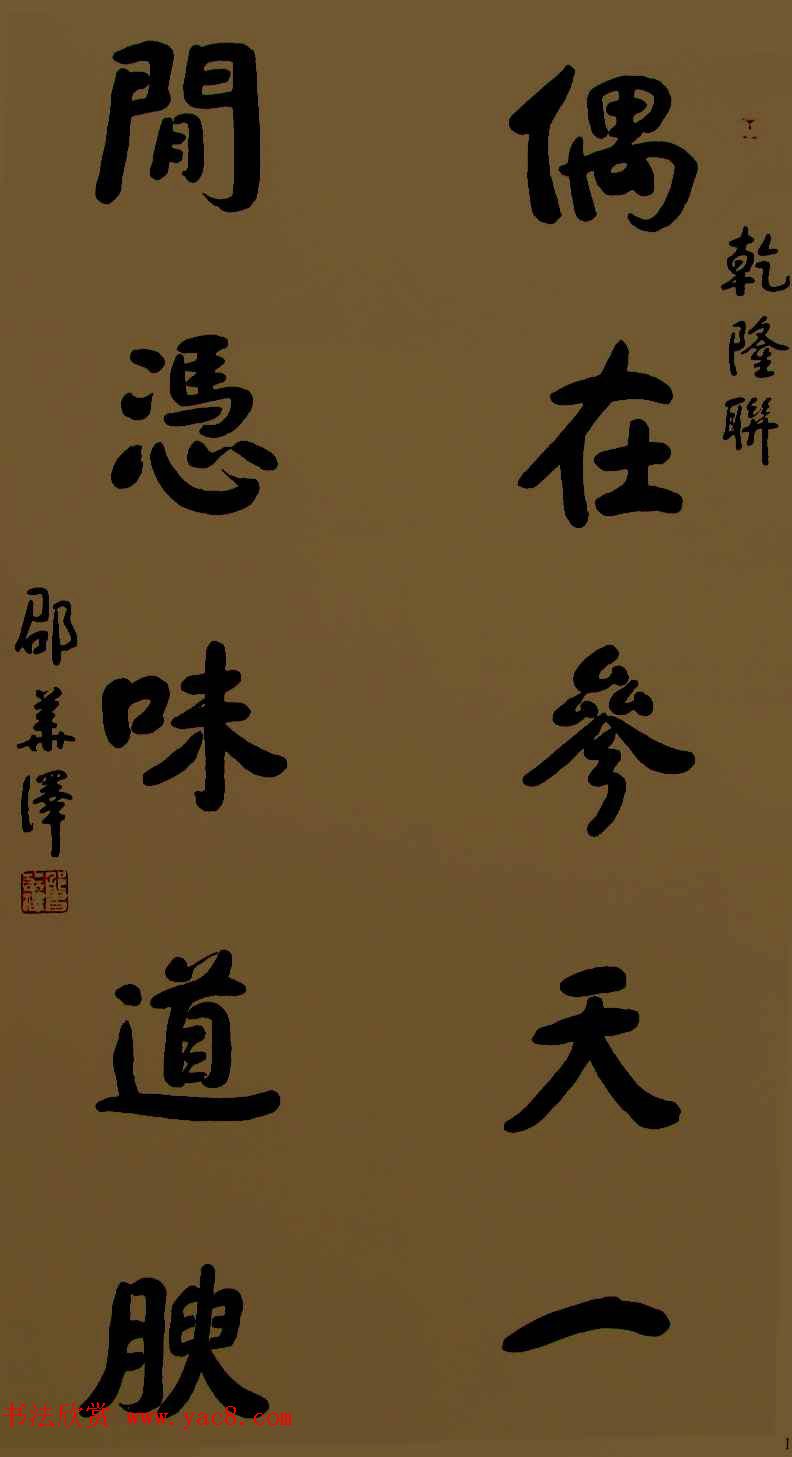 乾隆聯
偶在參天一
閒憑味道腴
邵華澤
书法欣赏 www.yac8.com
1